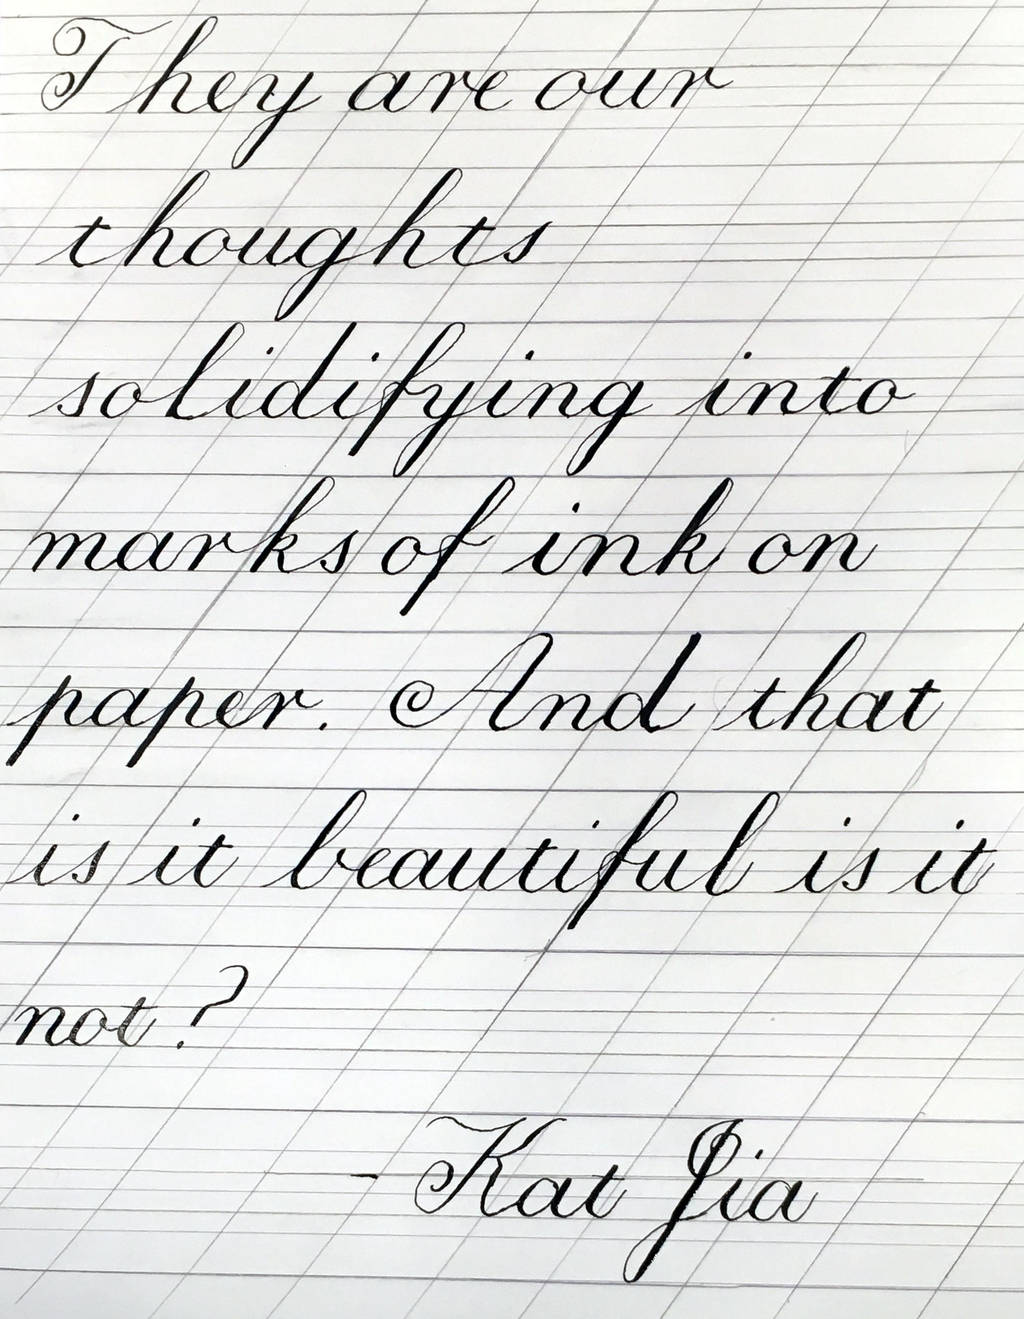 They are our
thoughts
solidifying into
marks of ink on
paper. And that
is it beautiful is it
not?
- Kat Jia